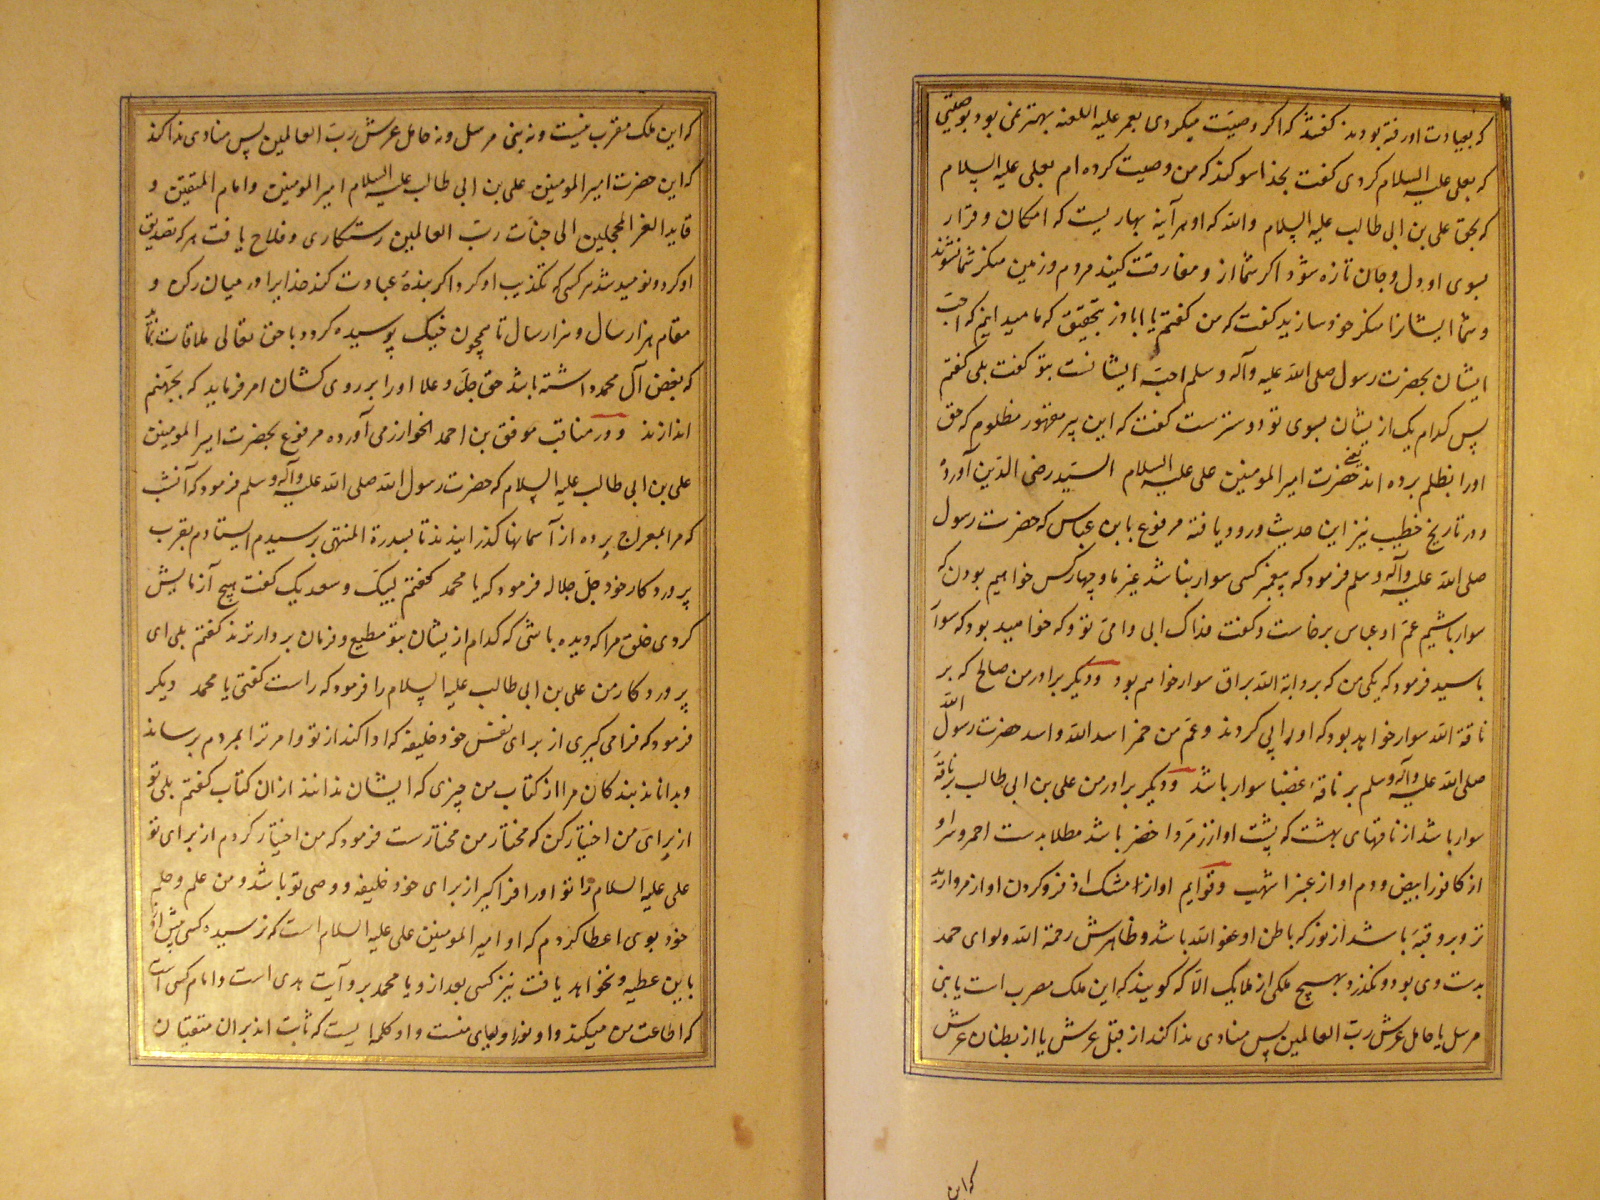 که بعیادت او رفته بودند گفتند که اگر وصیت میکردی بعمر علیه اللعنه بهتر نمی بود بوصیتی
که بعلی علیه السلام کردی گفت بخدا سوگند که من وصیت کرده ام بعلی علیه السلام
که بحق علی بن ابی طالب علیه السلام والله که او هر آینه بهاریست که امکان و قرار
بسوی او و دل و جان تازه شود اگر شما از و مفارقت کنید مردم و زمین منکر شما شوند
و شما ایشانرا منکر خود سازید گفت که من گفتم یا اباذر بتحقیق که ما میدانیم که احب
ایشان بحضرت رسول صلی الله علیه وآله وسلم احبّ ایشانست بتو گفت بلی گفتم
پس کدام یک از یشان بسوی تو دوسترست گفت که این پیر مقهور مظلوم که حق
او را بظلم برده اند یعنی حضرت امیر المومنین علی علیه السلام السید رضی الدین آورده
و در تاریخ خطیب نیز این حدیث ورود یافته مرفوع بابن عباس که حضرت رسول
صلی الله علیه وآله وسلم فرمود که پیغمبر کسی سوار نباشد غیر ما و چهار کس خواهیم بودن که
سوار باشیم عمّ او عباس برخاست و گفت فداک ابی و امی تو و که خواهید بود که سوار
باشید فرمود که یکی من که بر دابة الله براق سوار خواهم بود و دیگر برادر من صالح که بر
ناقة الله سوار خواهد بود که او را پی کردند و عم من حمزه اسد الله و اسد حضرت رسول الله
صلی الله علیه وآله وسلم بر ناقهٔ غضبا سوار باشد و دیگر برادر من علی بن ابی طالب بر ناقهٔ
سوار باشد از ناقهای بهشت که پشت او از زمرد اخضر باشد مطلا بذهب احمر و سر او
از کافور ابیض و دم او از عنبر اشهب و قوایم او از مشک اذفر و گردن او از مروارید
تر و برو قبهٔ باشد از نور که باطن او عفو الله باشد و ظاهرش رحمة الله و لوای حمد
بدست وی بود و نگذرد بهیچ ملکی از ملایک الا که گویند که این ملک مقرب است یا نبی
مرسل یا حامل عرش رب العالمین پس منادی ندا کند از قبل عرش یا از بطنان عرش
که این
که این ملک مقرب نیست و نه نبی مرسل و نه حامل عرش رب العالمین پس منادی ندا کند
که این حضرت امیر المومنین علی بن ابی طالب علیه السلام امیر المومنین و امام المتقین و
قاید الغر المحجلین الی جنات رب العالمین رستکاری و فلاح یافت هر که تصدیق
او کرد و نومید شد هر کسی که تکذیب او کرد و اگر بندهٔ عبادت کند خدا را در میان رکن و
مقام هزار سال و هزار سال تا همچون خیک پوسیده گردد و با حق تعالی ملاقات نماید
که بغض آل محمد داشته باشد حق جل و علا او را بر روی کشان امر فرماید که بجهنم
اندازند و در مناقب موفق بن احمد الخوارزمی آورده مرفوع بحضرت امیر المومنین
علی بن ابی طالب علیه السلام که حضرت رسول الله صلی الله علیه وآله وسلم فرمود که آنشب
که مرا بمعراج برده از آسمانها گذرانیدند تا بسدرة المنتهی برسیدم ایستادم بقرب
پروردگار خود جل جلاله فرمود که یا محمد گفتم لبیک و سعدیک گفت هیچ آزمایش
کردی خلق مرا که دیده باشی که کدام از یشان بتو مطیع و فرمان بردارترند گفتم بلی ای
پروردگار من علی بن ابی طالب علیه السلام را فرمود که راست گفتی یا محمد دیگر
فرمود که فرا می گیری از برای نفس خود خلیفه که ادا کند از تو و امر ترا بمردم برساند
و بداناند بندگان مرا از کتاب من چیزی که ایشان ندانند از آن کتاب گفتم بلی تو
از برای من اختیار کن که مختار من مختارست فرمود که من اختیار کردم از برای تو
علی علیه السلام را تو او را فرا گیر از برای خود خلیفه و وصی تو باشد و من علم و حلم
خود بوی اعطا کردم که او امیر المومنین علی علیه السلام است که نرسیده کسی پیش از او
باین عطیه و نخواهد یافت نیز کسی بعد ازو یا محمد برو آیت هدی است و امام کسی است
که اطاعت من میکند و او نور اولیای منست و او کلمه ایست که ثابت اند بر آن متقیان